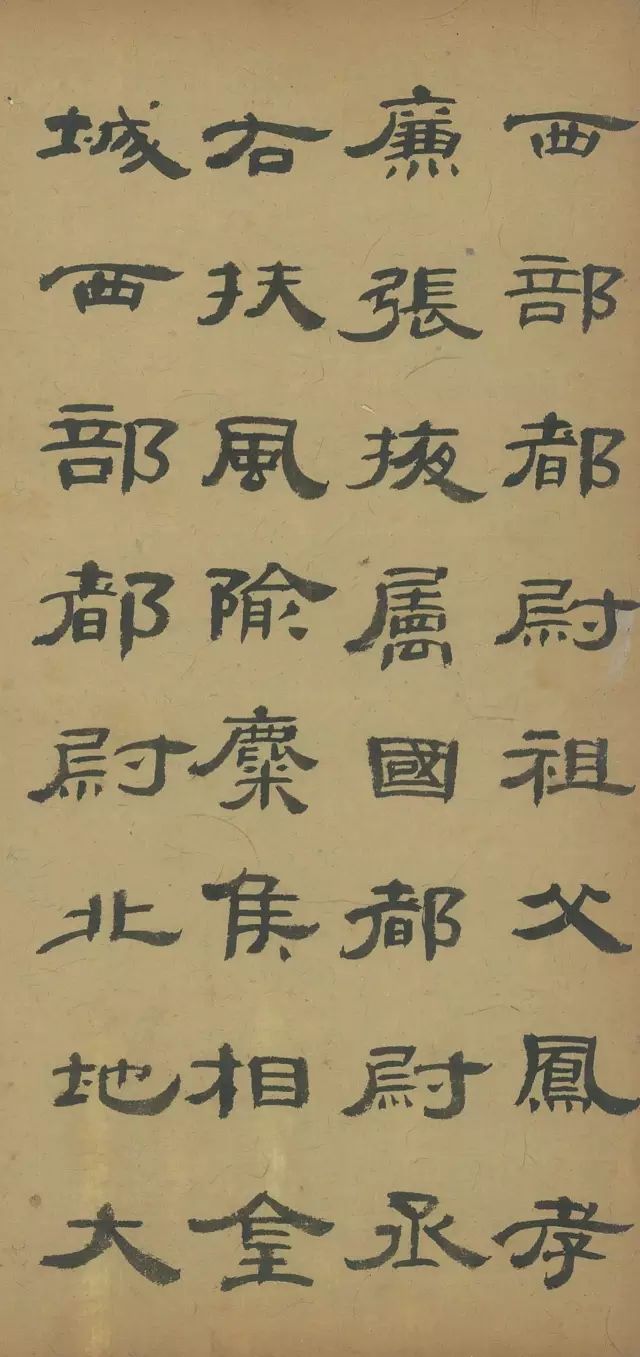 西部都尉祖父鳳孝
廉張掖屬國都尉丞
右扶風隃麋侯相金
城西部都尉北地大